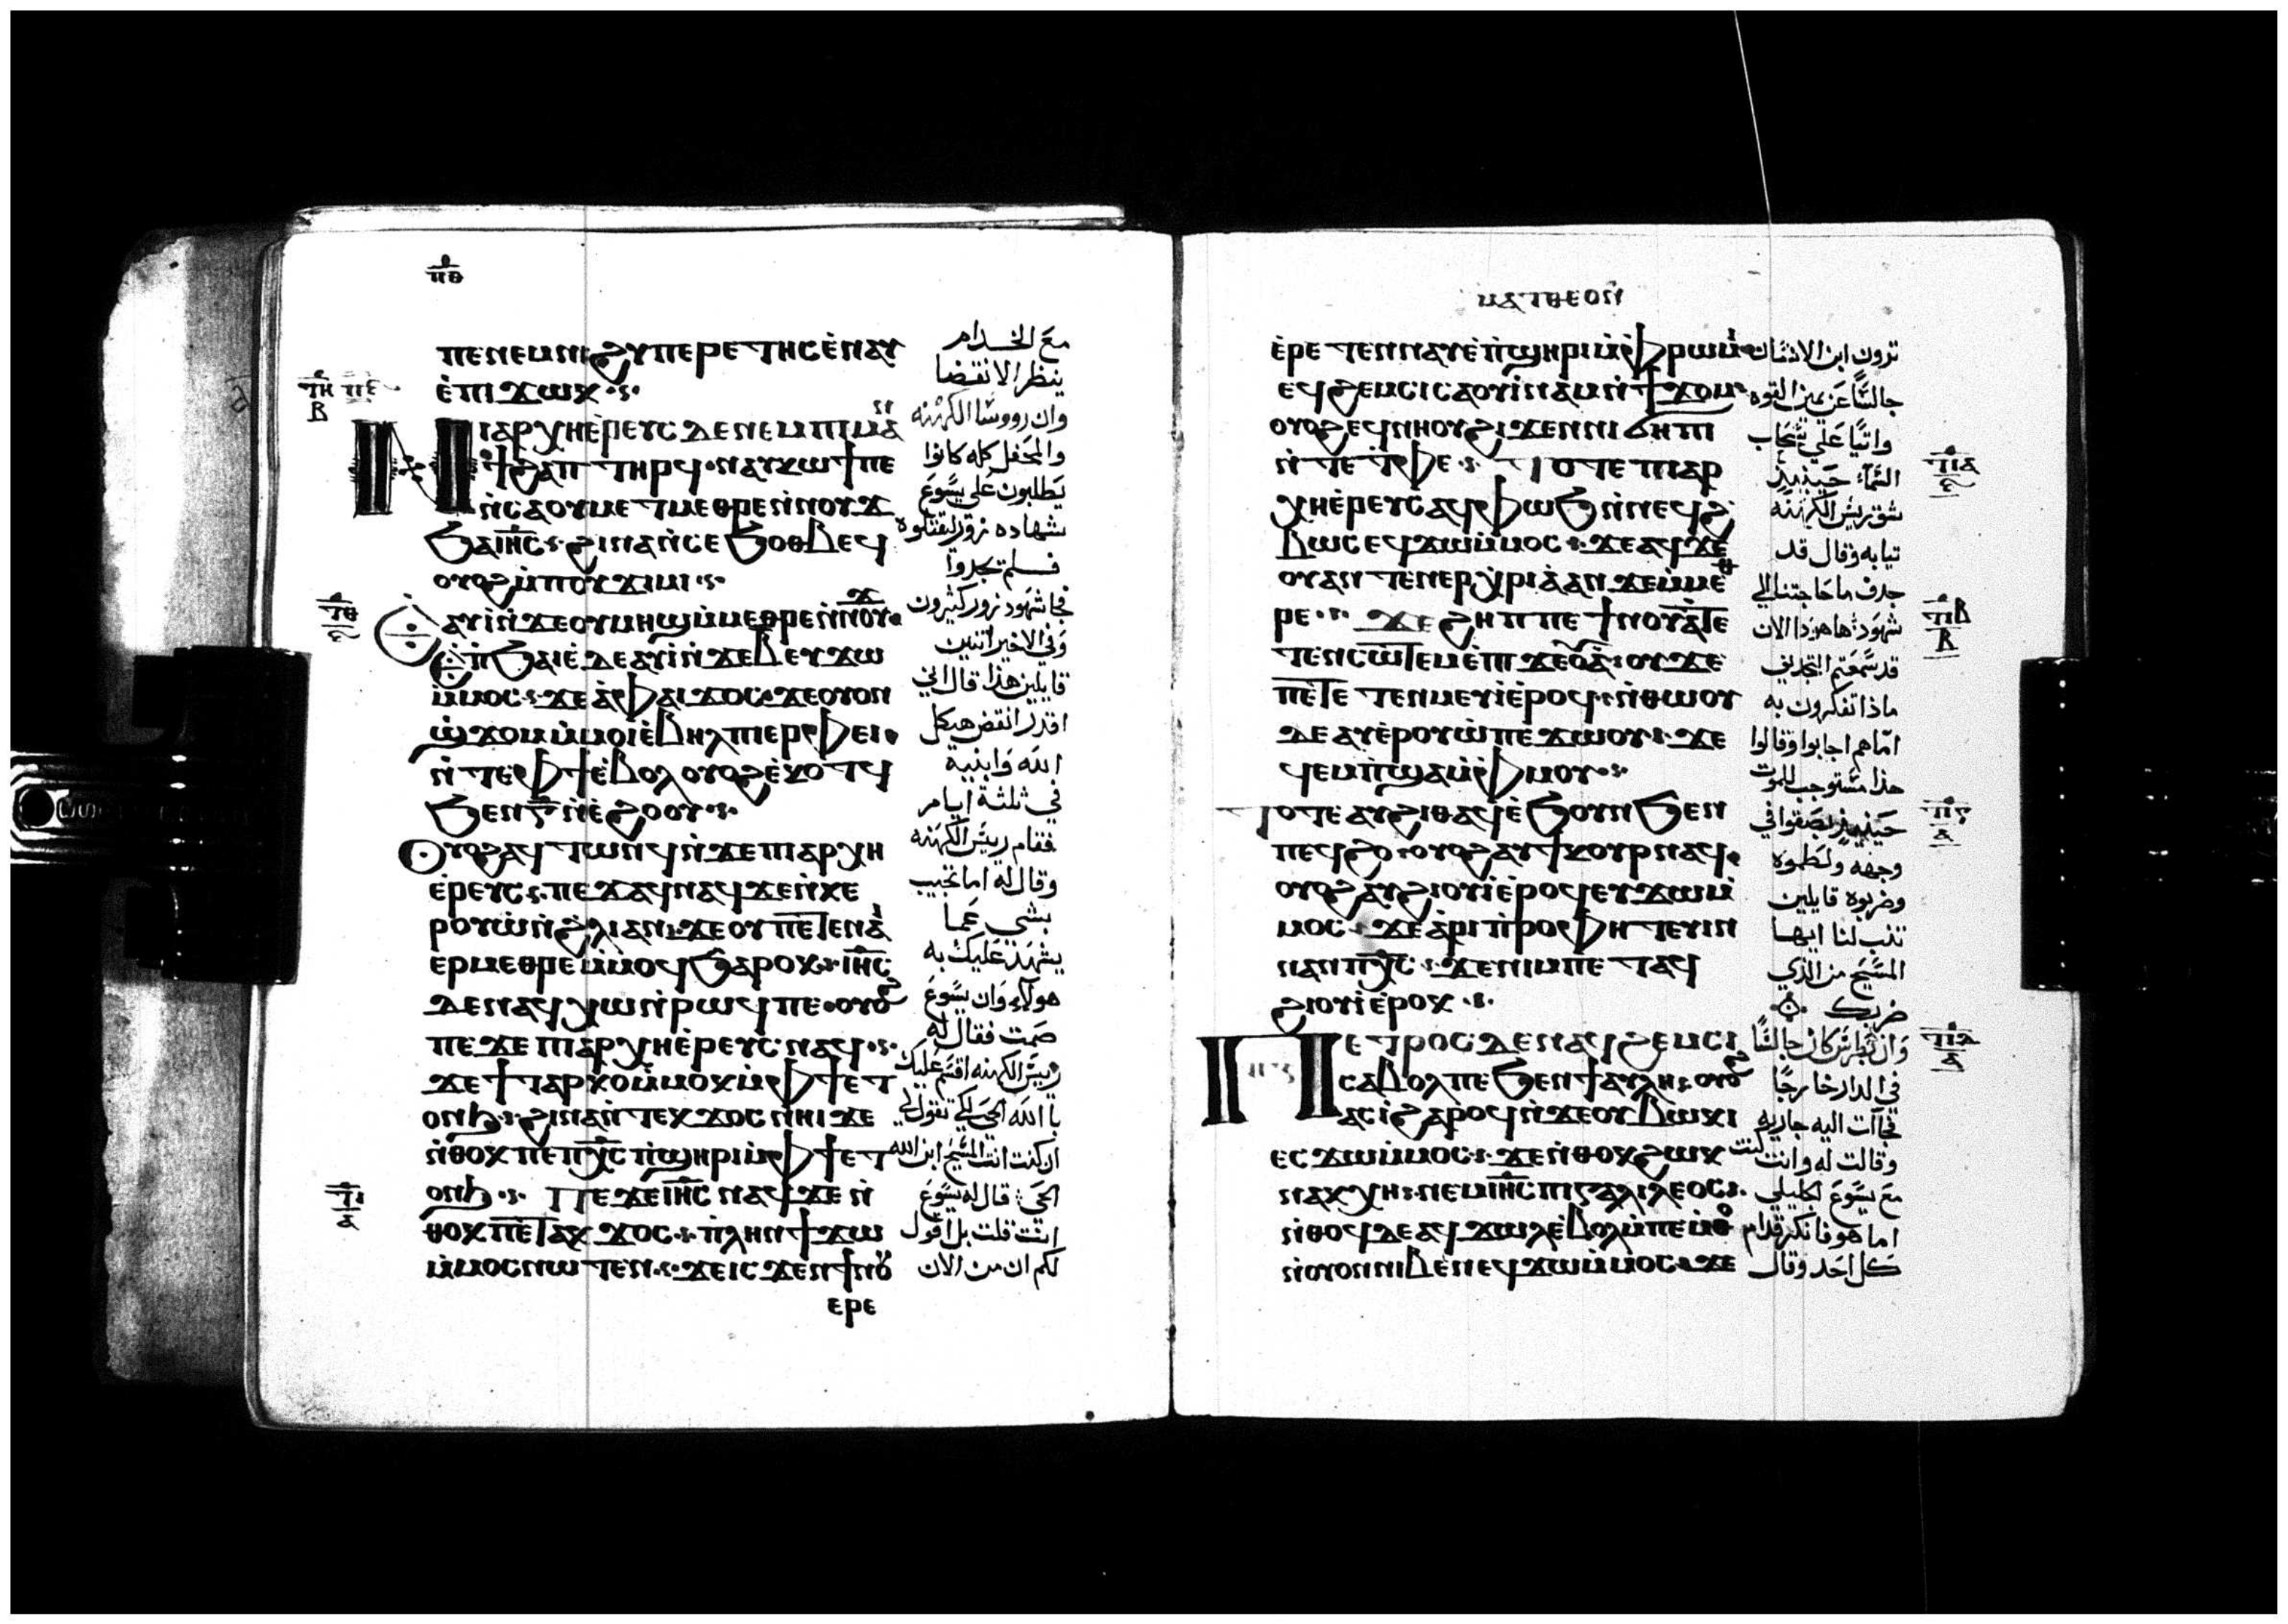 ⲡⲑ
ⲡⲉⲛⲉⲙⲛⲓϩⲩⲡⲉⲣⲉⲧⲏⲥⲉ̀ⲛⲁⲩ
ⲉ̀ⲡⲓϫⲱⲕ
ⲛⲓⲁⲣⲭⲏⲉ̀ⲣⲉⲩⲥ ⲇⲉⲛⲉⲙⲡⲓⲙⲁ
ⲛ̀ϯϩⲁⲡ ⲧⲏⲣϥ ⲛⲁⲩⲕⲱϯⲡⲉ
ⲛ̀ⲥⲁⲟⲩⲙⲉⲧⲙⲉⲑⲣⲉⲛ̀ⲛⲟⲩϫ
ϧⲁⲓⲏⲥ ϩⲓⲛⲁⲛ̀ⲥⲉϧⲟⲑⲃⲉϥ
ⲟⲩⲟϩⲙ̀ⲡⲟⲩϫⲓⲙⲓ
ⲉ̀ⲁⲩⲓ̀ⲛ̀ϫⲉⲟⲩⲙⲏϣⲙ̀ⲙⲉⲑⲣⲉⲛ̀ⲛⲟⲩϫ
ⲉ̀ⲡ̀ϧⲁⲉ̀ ⲇⲉⲁⲩⲓ̀ⲛ̀ϫⲉⲃ ⲉⲩϫⲱ
ⲙ̀ⲙⲟⲥ ϫⲉⲁ̀ⲫⲁⲓ ϫⲟⲥ ϫⲉⲟⲩⲟⲛ
ϣ̀ϫⲟⲙⲙ̀ⲙⲟⲓⲉ̀ⲃⲏⲗⲡⲓⲉⲣⲫⲉⲓ
ⲛ̀ⲧⲉⲫϯⲉ̀ⲃⲟⲗ ⲟⲩⲟϩⲉ̀ⲕⲟⲧϥ
ϧⲉⲛⲅ̅ⲛ̀ⲉ̀ϩⲟⲟⲩ
ⲟⲩⲟϩⲁϥⲧⲱⲛϥⲛ̀ϫⲉⲡⲓⲁⲣⲭⲏ
ⲉ̀ⲣⲉⲩⲥ ⲡⲉϫⲁϥⲛⲁϥϫⲉⲛ̀ⲭⲉ
ⲣⲟⲩⲱ̀ⲛ̀ϩⲗⲓⲁⲛ ϫⲉⲟⲩⲡⲉⲧⲉⲛⲁⲓ
ⲉⲣⲙⲉⲑⲣⲉⲙ̀ⲙⲟϥϧⲁⲣⲟⲕ ⲓⲏⲥ
ⲇⲉⲛⲁϥⲭⲱⲛ̀ⲣⲱϥⲡⲉ ⲟⲩⲟϩ
ⲡⲉϫⲉⲡⲓⲁⲣⲭⲏⲉ̀ⲣⲉⲩⲥ ⲛⲁϥ
ϫⲉϯⲧⲁⲣⲕⲟⲙ̀ⲙⲟⲕⲙ̀ⲫϯⲉⲧ
ⲟⲛϧ ϩⲓⲛⲁⲛ̀ⲧⲉⲕϫⲟⲥⲛⲏⲓ ϫⲉ
ⲛ̀ⲑⲟⲕⲡⲉⲡⲭⲥ ⲡ̀ϣⲏⲣⲓⲙ̀ⲫϯⲉⲧ
ⲟⲛϧ ⲡⲉϫⲉⲓⲏⲥ ⲛⲁϥϫⲉⲛ̀
ⲑⲟⲕⲡⲉⲧⲁⲕϫⲟⲥ ⲡ̀ⲗⲏⲛϯϫⲱ
ⲙ̀ⲙⲟⲥⲛⲱⲧⲉⲛ ϫⲉⲓⲥϫⲉⲛϯⲛⲟⲩ
ⲉⲣⲉ
مع الخدام
ينظر الانقضا
وان رووسا الكهنه
والمحفل كله كانوا
يطلبون على يسوع
شهاده زور ليقتلوه
فلم يجدوا
فجا شهود زور كثيرون
وفي الاخير اتنين
قايلين هذا قال اني
اقدر انقض هيكل
الله وابنيه
في ثلثة ايام
فقام رييس الكهنه
وقال له اما تجيب
بشي عما
يشهد عليك به
هولاء وان يسوع
صمت فقال له
رييس الكهنه اقسم عليك
باالله الحي لكي تقول لي
ان كنت انت المسيح ابن الله
الحي قال له يسوع
انت قلت بل اقول
لكم ان من الان
ⲙⲁⲧⲑⲉⲟⲛ
ⲉ̀ⲣⲉⲧⲉⲛⲛⲁⲩⲉ̀ⲡ̀ϣⲏⲣⲓⲙ̀ⲫⲣⲱⲙⲓ
ⲉϥϩⲉⲙⲥⲓ ⲥⲁⲟⲩⲓ̀ⲛⲁⲙⲛ̀ϯϫⲟⲙ
ⲟⲩⲟϩⲉϥⲛⲏⲟⲩϩⲓϫⲉⲛⲛⲓϭⲏⲡⲓ
ⲛ̀ⲧⲉⲧ̀ⲫⲉ ⲧⲟⲧⲉⲡⲓⲁⲣ
ⲭⲏⲉ̀ⲣⲉⲩⲥⲁϥⲫⲱϧⲛ̀ⲛⲉϥϩ
ⲃⲱⲥ ⲉϥϫⲱⲙ̀ⲙⲟⲥ ϫⲉⲁϥϫⲉ
ⲟⲩⲁⲛ ⲧⲉⲛⲉⲣⲭⲣⲓⲁ̀ⲁⲛϫⲉⲙ̀ⲙⲉⲑ
ⲣⲉ ϫⲉϩⲏⲡⲡⲉϯⲛⲟⲩⲁ̀ⲧⲉ
ⲧⲉⲛⲥⲱⲧⲉⲙⲉ̀ⲡⲓϫⲉⲟⲩⲁ̀ ⲟⲩ ϫⲉ
ⲡⲉⲧⲉ ⲧⲉⲛⲙⲉⲩⲓ̀ⲉ̀ⲣⲟϥ ⲛ̀ⲑⲱⲟⲩ
ⲇⲉⲁⲩⲉ̀ⲣⲟⲩⲱ̀ⲡⲉϫⲱⲟⲩ ϫⲉ
ϥⲉⲙⲡ̀ϣⲁⲙ̀ⲫⲙⲟⲩ
ⲧⲟⲧⲉⲁⲩϩⲓⲑⲁϥⲉ̀ϧⲟⲩⲛϧⲉⲛ
ⲡⲉϥϩⲟ ⲟⲩⲟϩⲁⲩϯⲕⲟⲩⲣⲛⲁϥ
ⲟⲩⲟϩⲁⲩϩⲓⲟⲩⲓ̀ⲉ̀ⲣⲟϥⲉⲩϫⲱⲙ̀
ⲙⲟⲥ ϫⲉⲁ̀ⲣⲓⲡ̀ⲣⲟⲫⲏⲧⲉⲩⲓⲛ
ⲛⲁⲛⲡⲭⲥ ϫⲉⲛⲓⲙⲡⲉⲧⲁϥ
ϩⲓⲟⲩⲓ̀ⲉ̀ⲣⲟⲕ
ⲡⲉⲧⲣⲟⲥ ⲇⲉⲛⲁϥϩⲉⲙⲥⲓ
ⲥⲁⲃⲟⲗⲡⲉϧⲉⲛϯⲁⲩⲗⲏ ⲟⲩⲟϩ
ⲁⲥⲓ̀ϩⲁⲣⲟϥⲛ̀ϫⲉⲟⲩⲃⲱⲕⲓ
ⲉⲥϫⲱⲙ̀ⲙⲟⲥ ϫⲉⲛ̀ⲑⲟⲕϩⲱⲕ
ⲛⲁⲕⲭⲏ ⲛⲉⲙⲓⲏⲥ ⲡⲓⲅⲁⲗⲓⲗⲉⲟⲥ
ⲛ̀ⲑⲟϥⲇⲉⲁϥϫⲱⲗⲉ̀ⲃⲟⲗⲙ̀ⲡⲉⲙ̀ⲑⲟ
ⲛ̀ⲟⲩⲟⲛⲛⲓⲃⲉⲛⲉϥϫⲱⲙ̀ⲙⲟⲥ ϫⲉ
ترون ابن الانسان
جالسا عن يمين القوه
واتيا على سحاب
السماء حينيذ
شق رييس الكهنه
تيابه وقال قد
جدف ما حاجتنا الي
شهود ها هوذا الان
قد سمعتم التجديف
ماذا تفكرون به
اما هم اجابوا وقالوا
هذا مستوجب للموت
حينيذ بصقوا في
وجهه ولطموه
وضربوه قايلين
تنب لنا ايها
المسيح من الذي
ضربك
وان بطرس كان جالسا
في الدار خارجا
فجاآت اليه جاريه
وقالت له وانت كنت
مع يسوع الجليلي
اما هو فانكر قدام
كل احد وقال